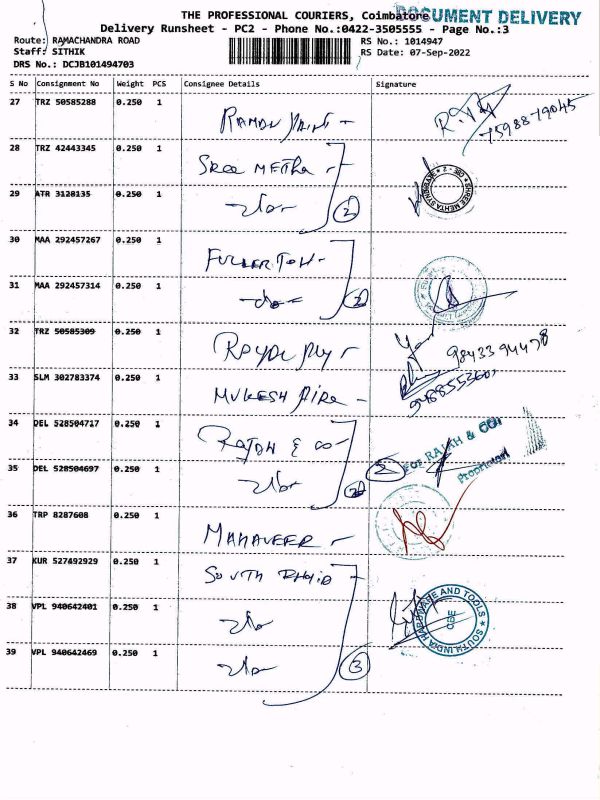 THE PROFESSIONAL COURIERS, Coimbatore
DOCUMENT DELIVERY
Delivery Runsheet - PC2 - Phone No.:0422-3505555 - Page No.:3
Route: RAMACHANDRA ROAD
RS No.: 1014947
Staff: SITHIK
RS Date: 07-Sep-2022
DRS No.: DCJB101494703
S No Consignment No Weight PCS Consignee Details Signature
27 TRZ 50585288 0.250 1
75988-79045
28 TRZ 42443345 0.250 1 SREE METHA
29 ATR 3128135 0.250 1 -do-
2
30 MAA 292457267 0.250 1 FULLERTON-
31 MAA 292457314 0.250 1 -do-
2
32 TRZ 50585309 0.250 1 ROYAL PLY
98433 94478
33 SLM 302783374 0.250 1 MUKESH
34 DEL 528504717 0.250 1 RAJAH & CO-
For RAJAH & CO
Proprietor
35 DEL 528504697 0.250 1 -do-
2
2
36 TRP 8287608 0.250 1 MAHAVEER
37 KUR 527492929 0.250 1 SOUTH INDIA
38 VPL 940642401 0.250 1 -do-
SOUTH INDIA HARDWARE AND TOOLS
CBE
39 VPL 940642469 0.250 1 -do-
3